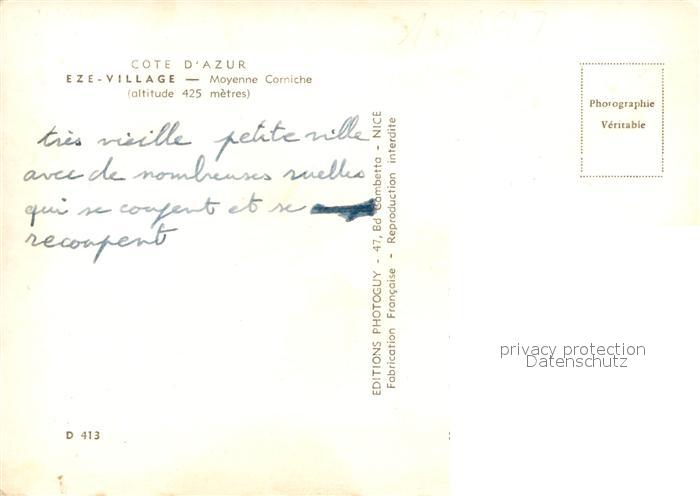 COTE D'AZUR
EZE-VILLAGE — Moyenne Corniche
(altitude 425 mètres)
très vieille petite ville
avec de nombreuses ruelles
qui se coupent et se
recoupent
D 413
EDITIONS PHOTOGUY - 47, Bd Gambetta - NICE
Fabrication Française - Reproduction interdite
Photographie
Véritable
privacy protection
Datenschutz